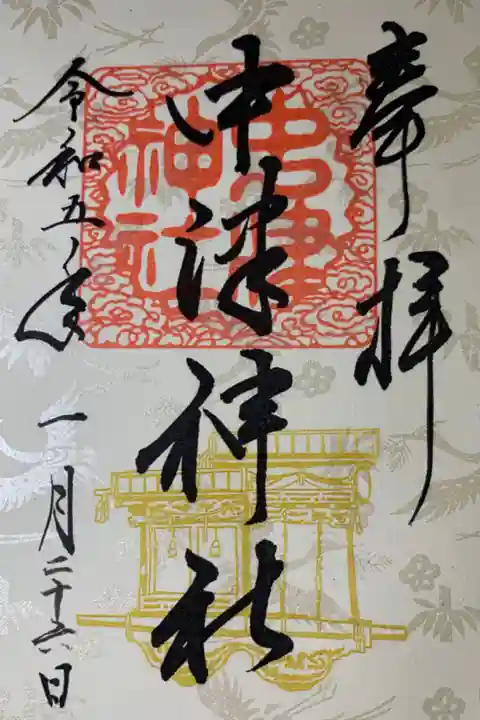 奉拝
中津神社
中津神社
令和五年
一月二十六日